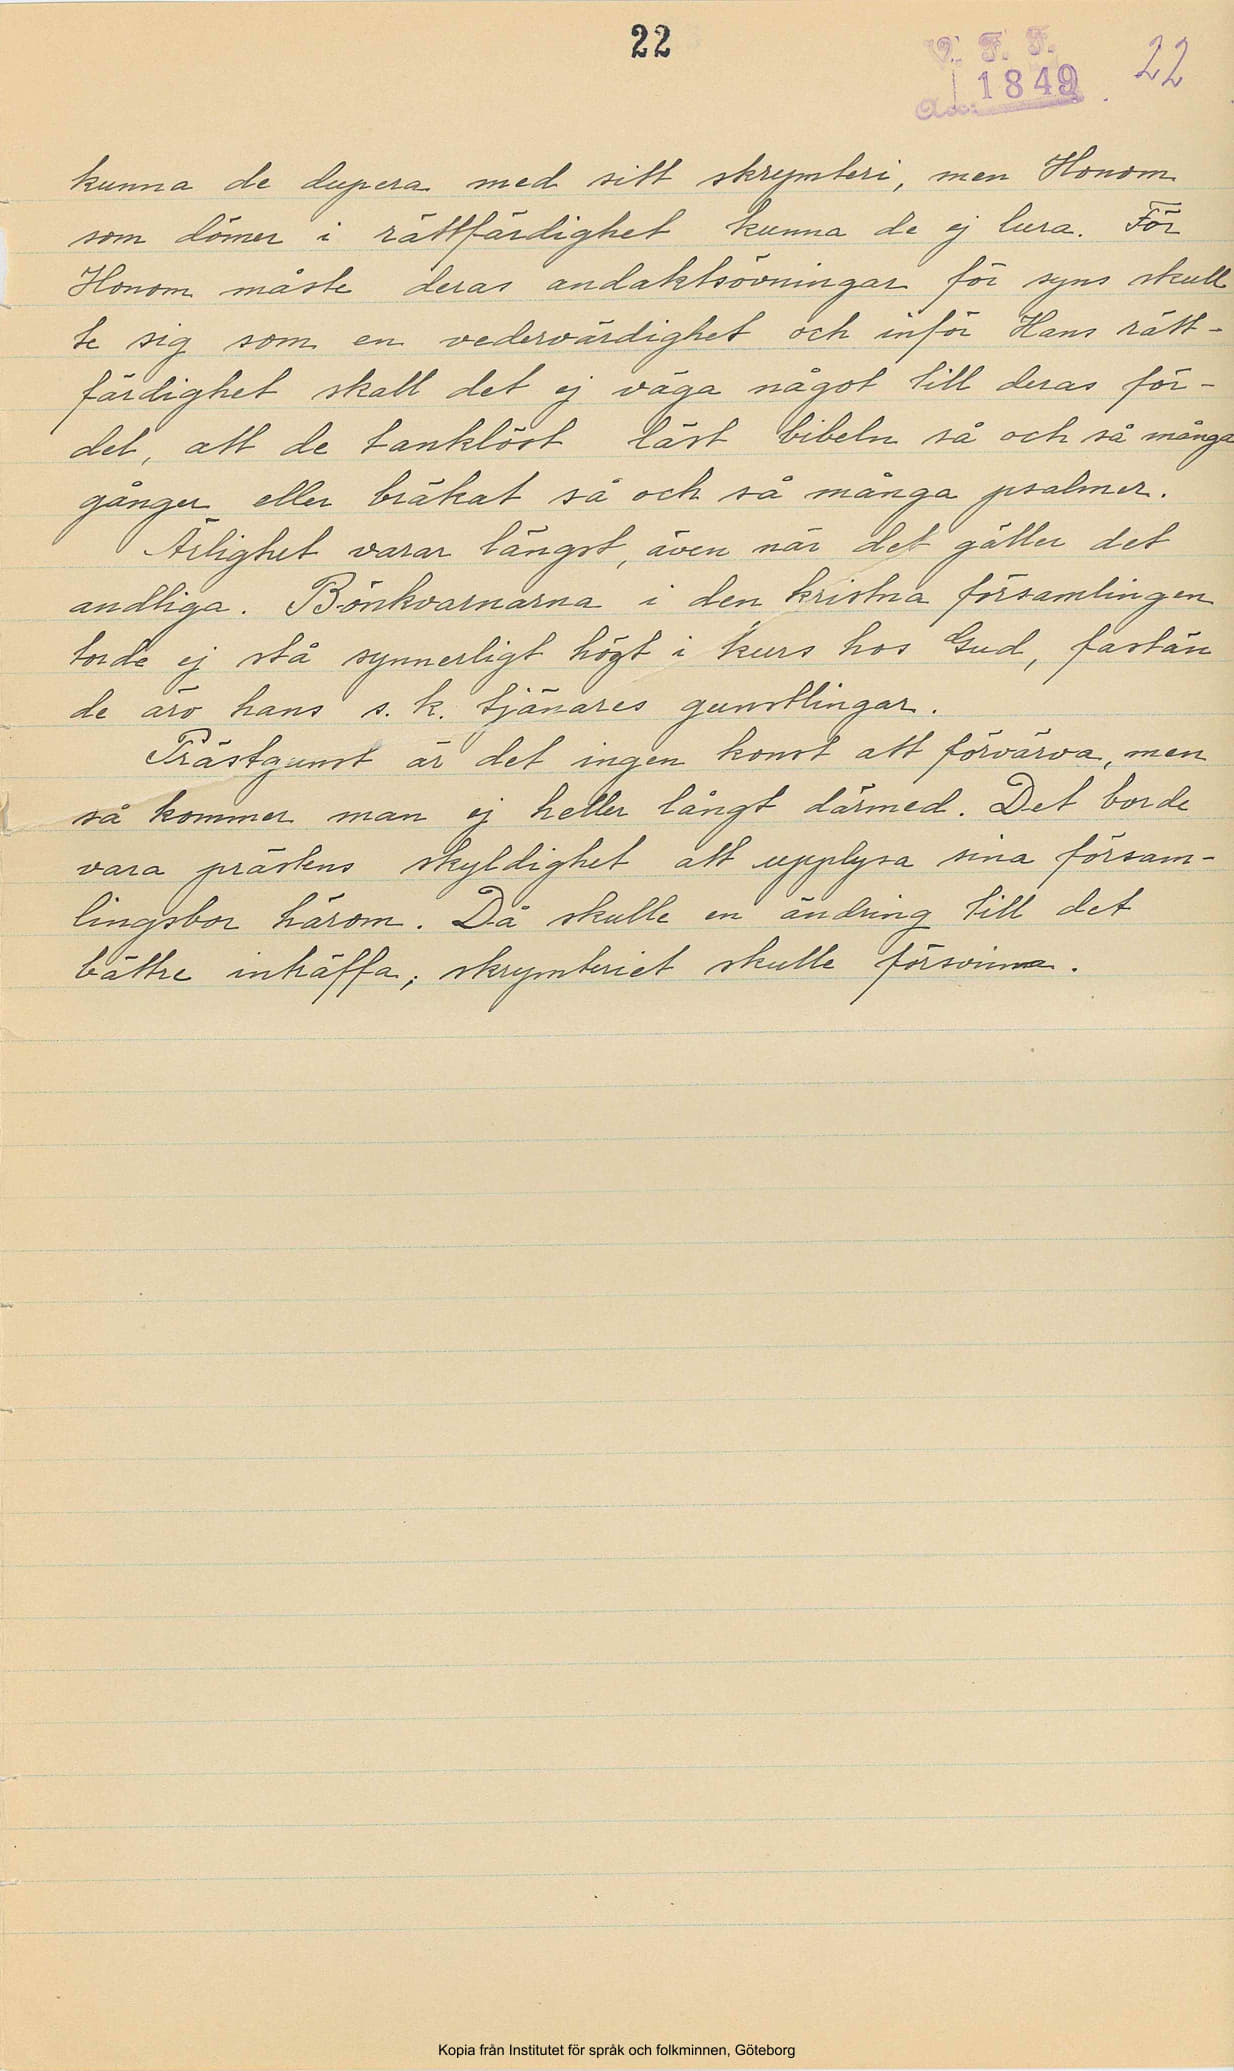 22
V. F. F.
1849
22
kunna de dupera med sitt skrymteri, men Honom
som dömer i rättfärdighet kunna de ej lura. För
Honom måste deras andaktsövningar för syns skull
te sig som en vedervärdighet och inför Hans rätt-
färdighet skall det ej väga något till deras för-
del, att de tanklöst läst bibeln så och så många
gånger eller bräkat så och så många psalmer.
Ärlighet varar längst, även när det gäller det
andliga. Bönkvarnarna i den kristna församlingen
torde ej stå synnerligt högt i kurs hos Gud, fastän
de äro hans s. k. tjänares gunstlingar.
Prästgunst är det ingen konst att förvärva, men
så kommer man ej heller långt därmed. Det borde
vara prästens skyldighet att upplysa sina försam-
lingsbor härom. Då skulle en ändring till det
bättre inträffa; skrymteriet skulle försvinna.
Kopia från Institutet för språk och folkminnen, Göteborg